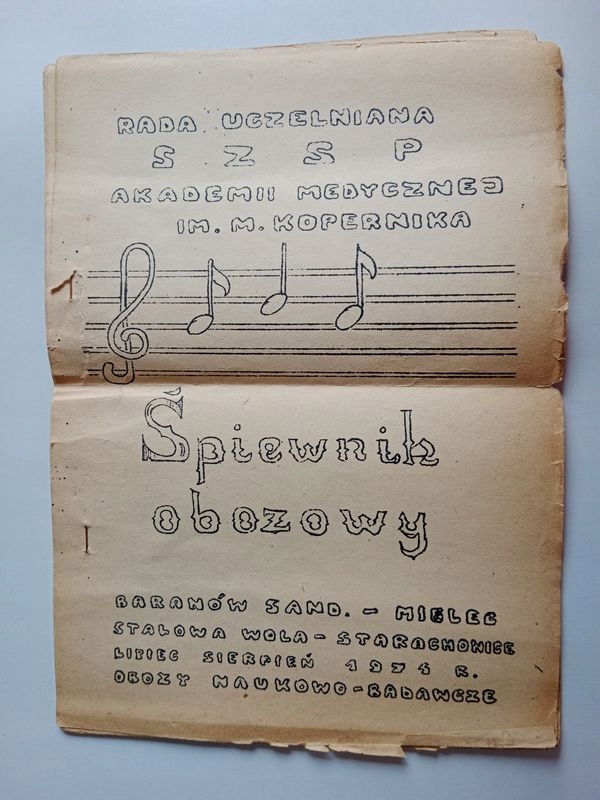 RADA UCZELNIANA
S Z S P
AKADEMII MEDYCZNEJ
IM. M. KOPERNIKA
Śpiewnik
obozowy
BARANÓW SAND. - MIELEC
STALOWA WOLA - STARACHOWICE
LIPIEC SIERPIEŃ 1974 R.
OBOZY NAUKOWO-BADAWCZE